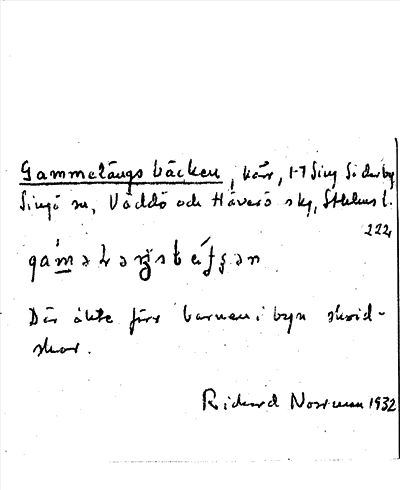 Gammelängsbäcken, kärr, 1-7 Sing Söderby
Singö sn, Väddö och Häverö skg, Sthlms l.
222
Där åkte förr barnen i byn skrid-
skor.
Rickard Norrman 1932